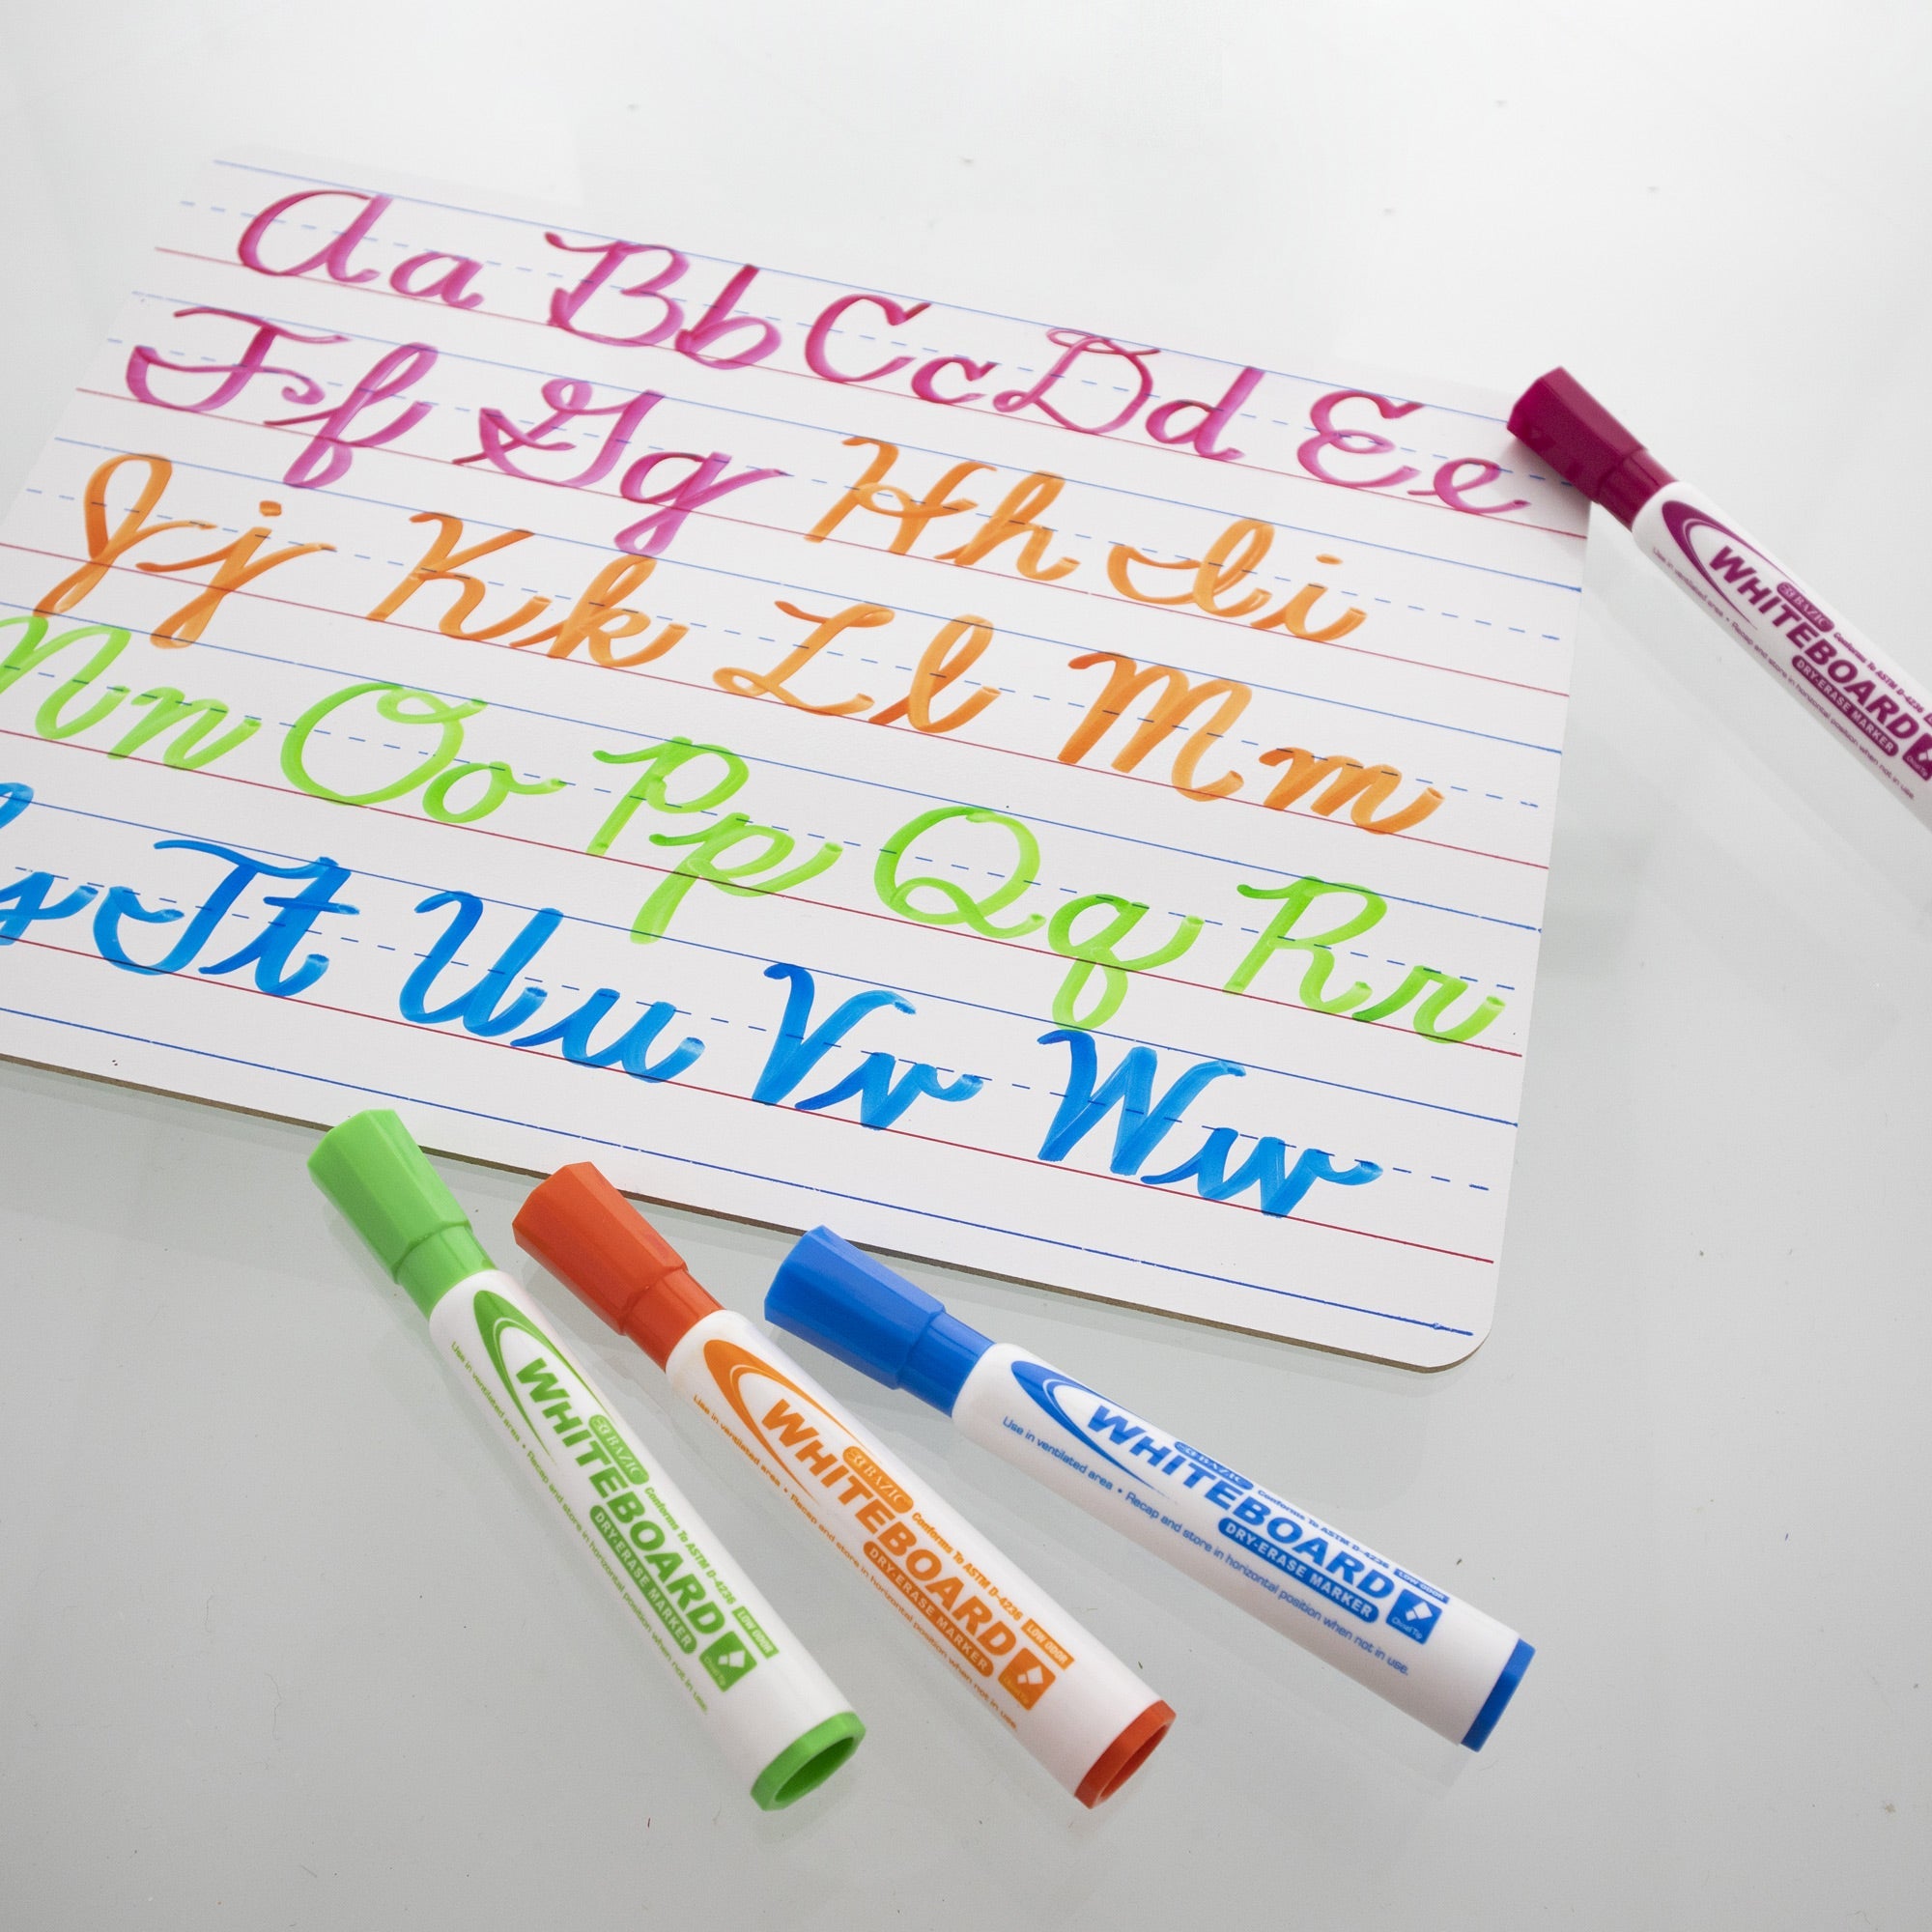 Aa Bb Cc Dd Ee
Ff Gg Hh Ii
Jj Kk Ll Mm
Nn Oo Pp Qq Rr
s Tt Uu Vv Ww
BAZIC Conforms To ASTM D-4236
WHITEBOARD
DRY-ERASE MARKER
Chisel Tip
Use in ventilated area • Recap and store in horizontal position when not in use.
BAZIC Conforms To ASTM D-4236 LOW ODOR
WHITEBOARD
DRY-ERASE MARKER
Chisel Tip
Use in ventilated area • Recap and store in horizontal position when not in use.
BAZIC Conforms To ASTM D-4236 LOW ODOR
WHITEBOARD
DRY-ERASE MARKER
Chisel Tip
Use in ventilated area • Recap and store in horizontal position when not in use.
BAZIC Conforms To ASTM D-4236 LOW ODOR
WHITEBOARD
DRY-ERASE MARKER
Chisel Tip
Use in ventilated area • Recap and store in horizontal position when not in use.